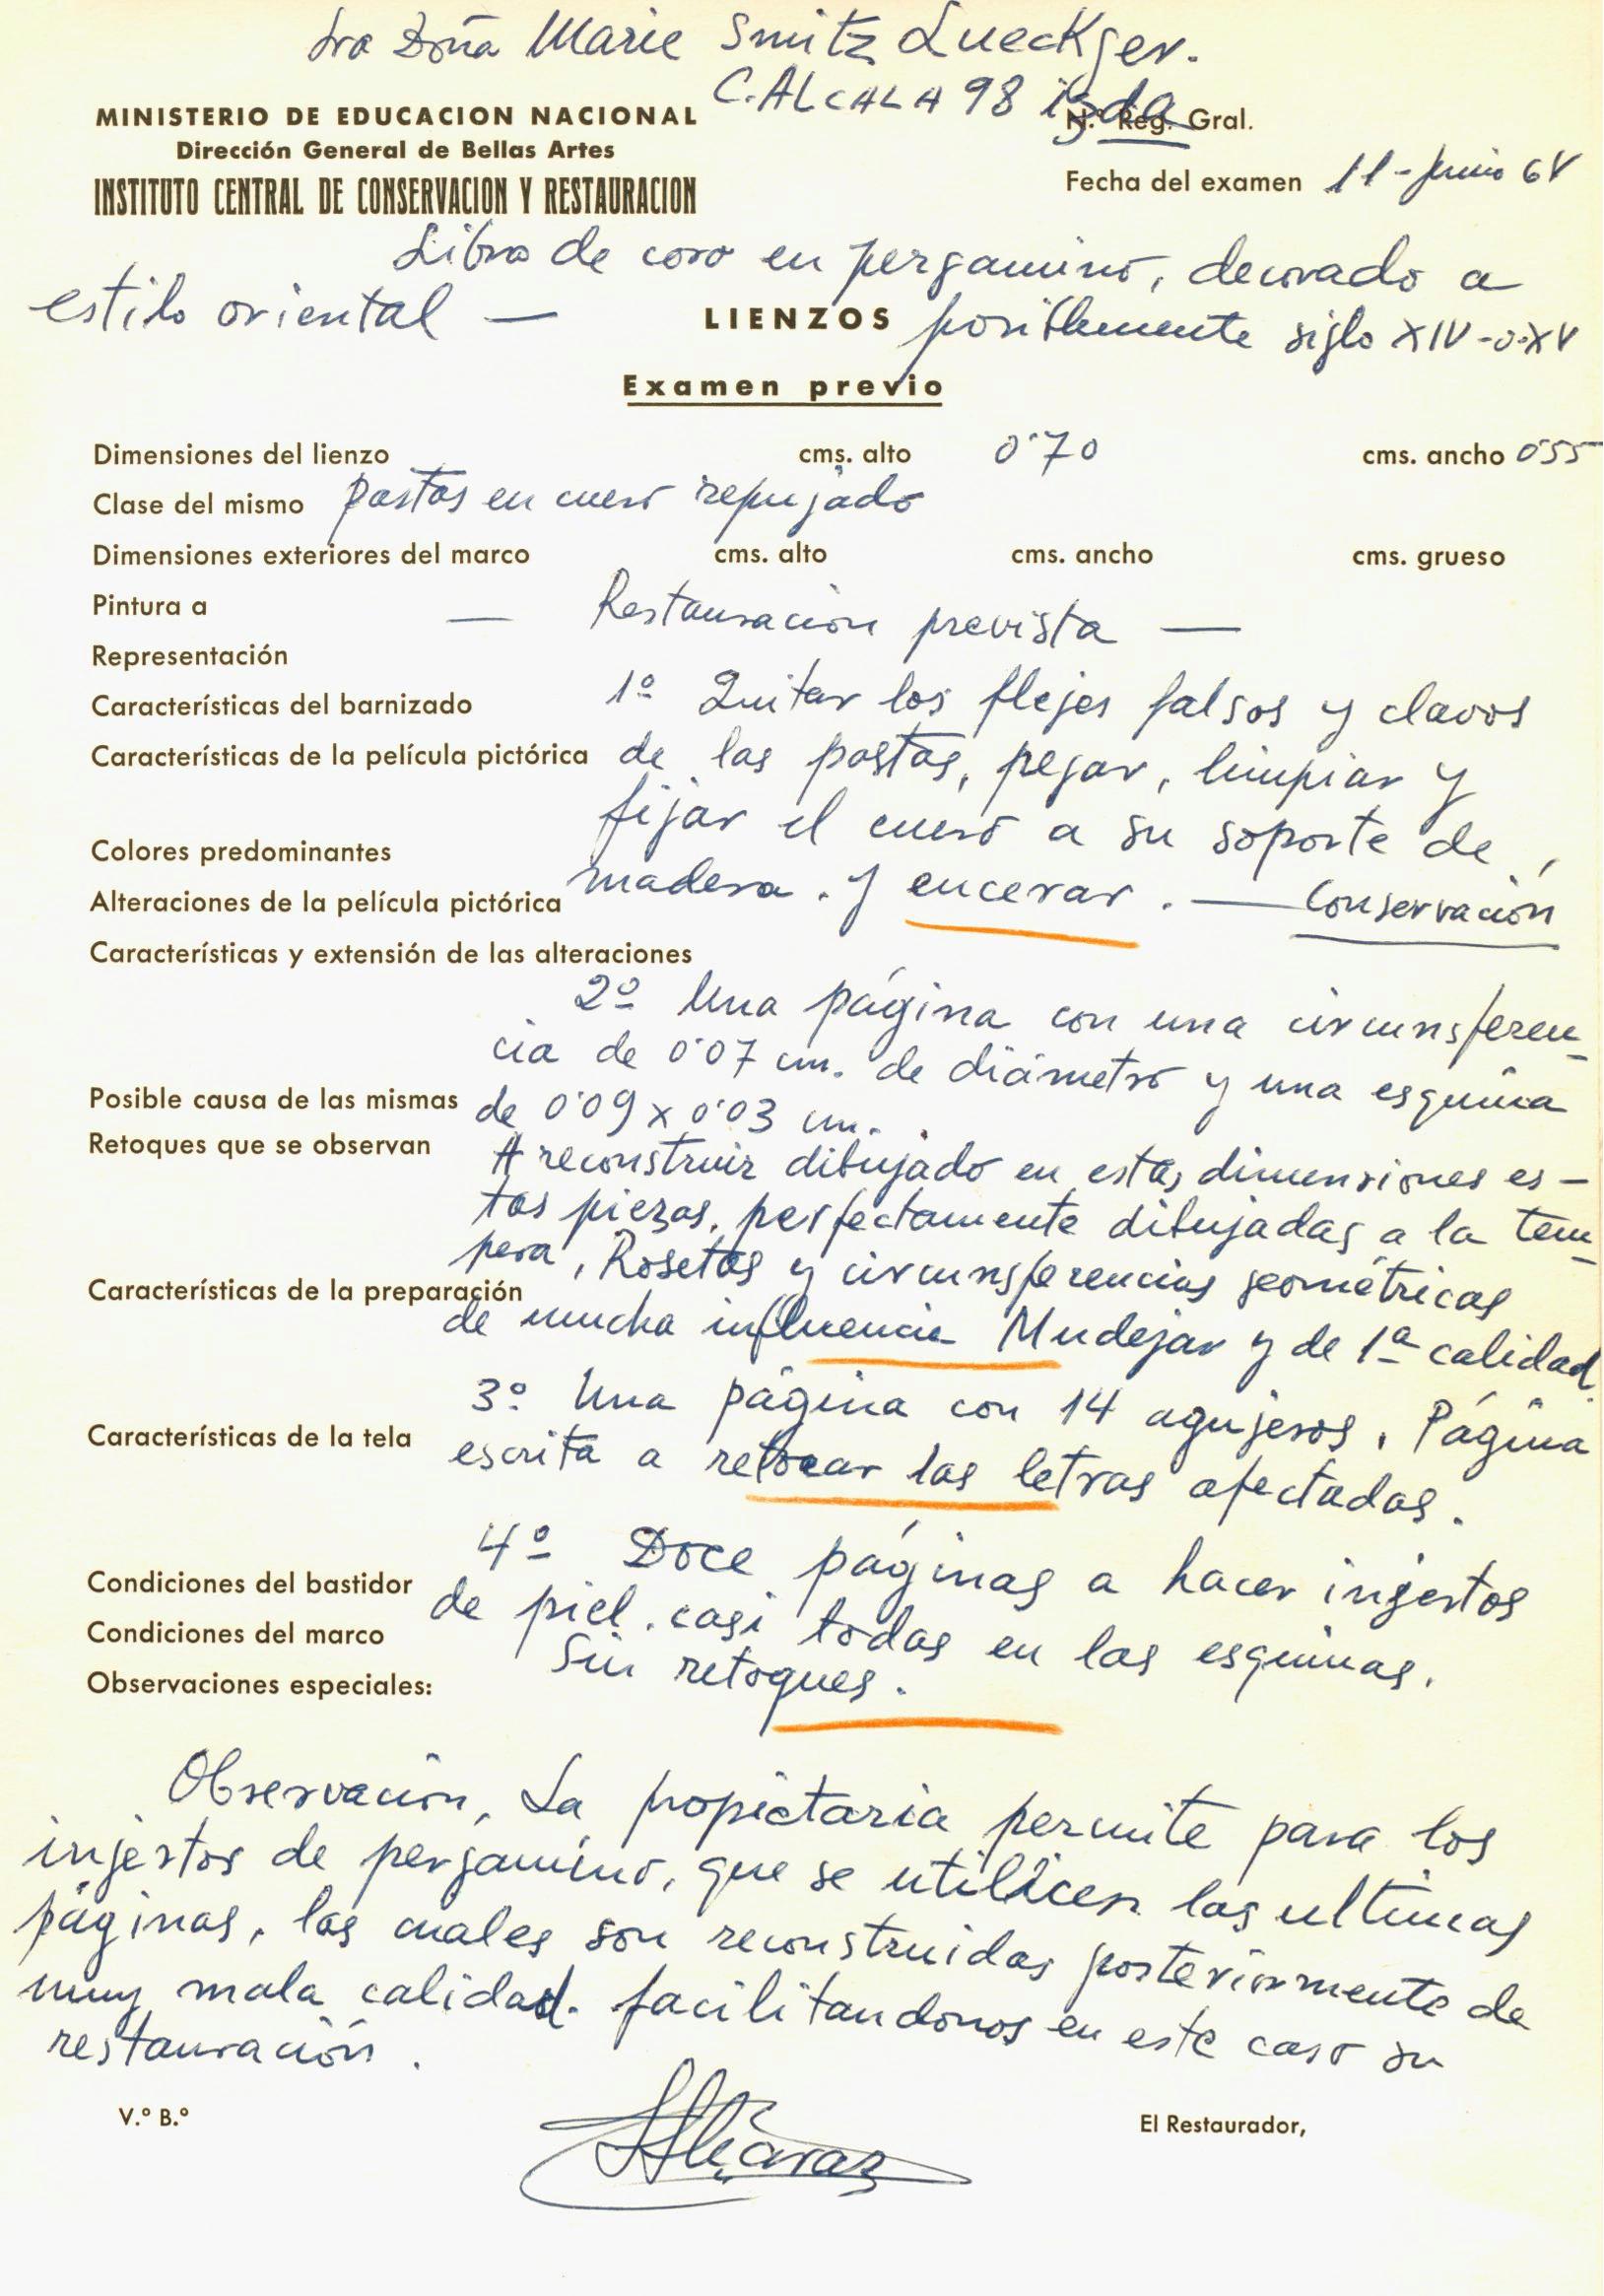 Sra Doña Marie Smitz Lueckger.
C. ALCALA 98 izda
MINISTERIO DE EDUCACION NACIONAL
Dirección General de Bellas Artes
INSTITUTO CENTRAL DE CONSERVACION Y RESTAURACION
N.º Reg. Gral.
Fecha del examen 11-Junio 6V
Libro de coro en pergamino, decorado a
estilo oriental — LIENZOS posiblemente siglo XIV-o-XV
Examen previo
Dimensiones del lienzo cms. alto 0'70 cms. ancho 0'55
Clase del mismo pastas en cuero repujado
Dimensiones exteriores del marco cms. alto cms. ancho cms. grueso
Pintura a — Restauracion prevista —
Representación
Características del barnizado 1º Quitar los flejes falsos y clavos
Características de la película pictórica de las pastas, pegar, limpiar y
fijar el cuero a su soporte de
Colores predominantes
madera. y encerar. — Conservación
Alteraciones de la película pictórica
Características y extensión de las alteraciones
2º Una página con una circunsferen-
cia de 0'07 cm. de diámetro y una esquina
Posible causa de las mismas de 0'09 x 0'03 cm.
Retoques que se observan A reconstruir dibujado en estas dimensiones es-
tas piezas, perfectamente dibujadas a la tem-
pera, Rosetas y circunsferencias geométricas
Características de la preparación
de mucha influencia Mudejar y de 1ª calidad.
3º Una página con 14 agujeros. Página
Características de la tela escrita a retocar las letras afectadas.
4º Doce páginas a hacer injertos
Condiciones del bastidor de piel. casi todas en las esquinas.
Condiciones del marco
Sin retoques.
Observaciones especiales:
Observación, La propietaria permite para los
injertos de pergamino, que se utilicen las ultimas
páginas, las cuales son reconstruidas posteriormente de
muy mala calidad. facilitandonos en este caso su
restauración.
V.º B.º
El Restaurador,